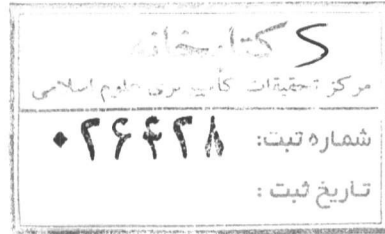 کتابخانه
مرکز تحقیقات کامپیوتری علوم اسلامی
شماره ثبت: ۰۲۶۴۲۸
تاریخ ثبت: